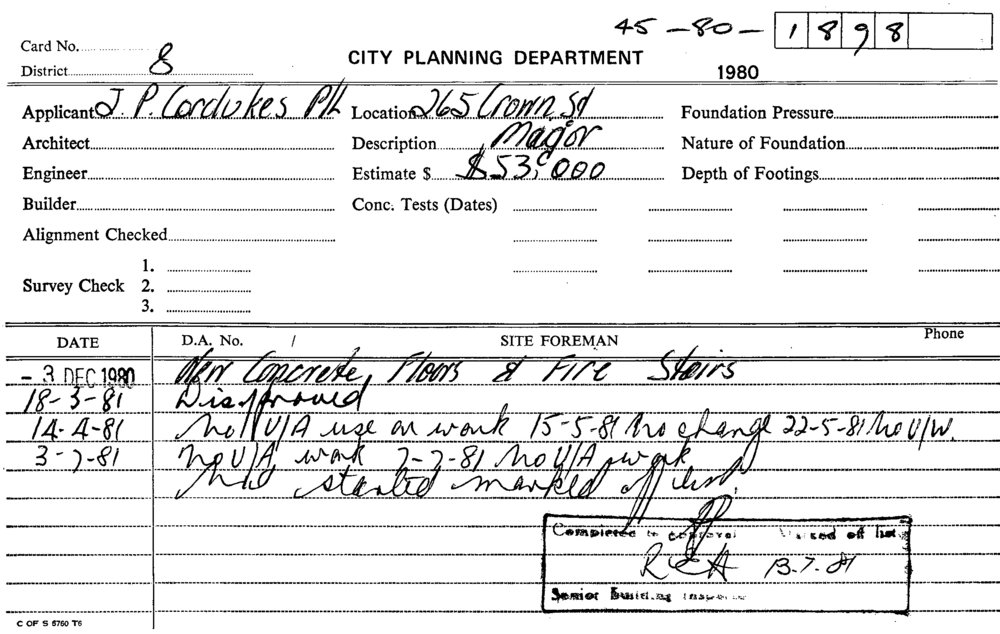 45-80- 1898
Card No.
District 8
CITY PLANNING DEPARTMENT
1980
Applicant J. P. Cordukes P/L Location 265 Crown St Foundation Pressure
Architect Description Major Nature of Foundation
Engineer Estimate $ $53,000 Depth of Footings
Builder Conc. Tests (Dates)
Alignment Checked
1.
Survey Check 2.
3.
DATE D.A. No. / SITE FOREMAN Phone
- 3 DEC 1980 New Concrete Floors & Fire Stairs
18-3-81 Disapproved
14-4-81 No U/A use or work 15-5-81 No change 22-5-81 No U/W.
3-7-81 No U/A work 7-7-81 No U/A work
started marked off list.
Completed to approval Marked off list
13.7.81
Senior Building Inspector
C OF S 6760 T6